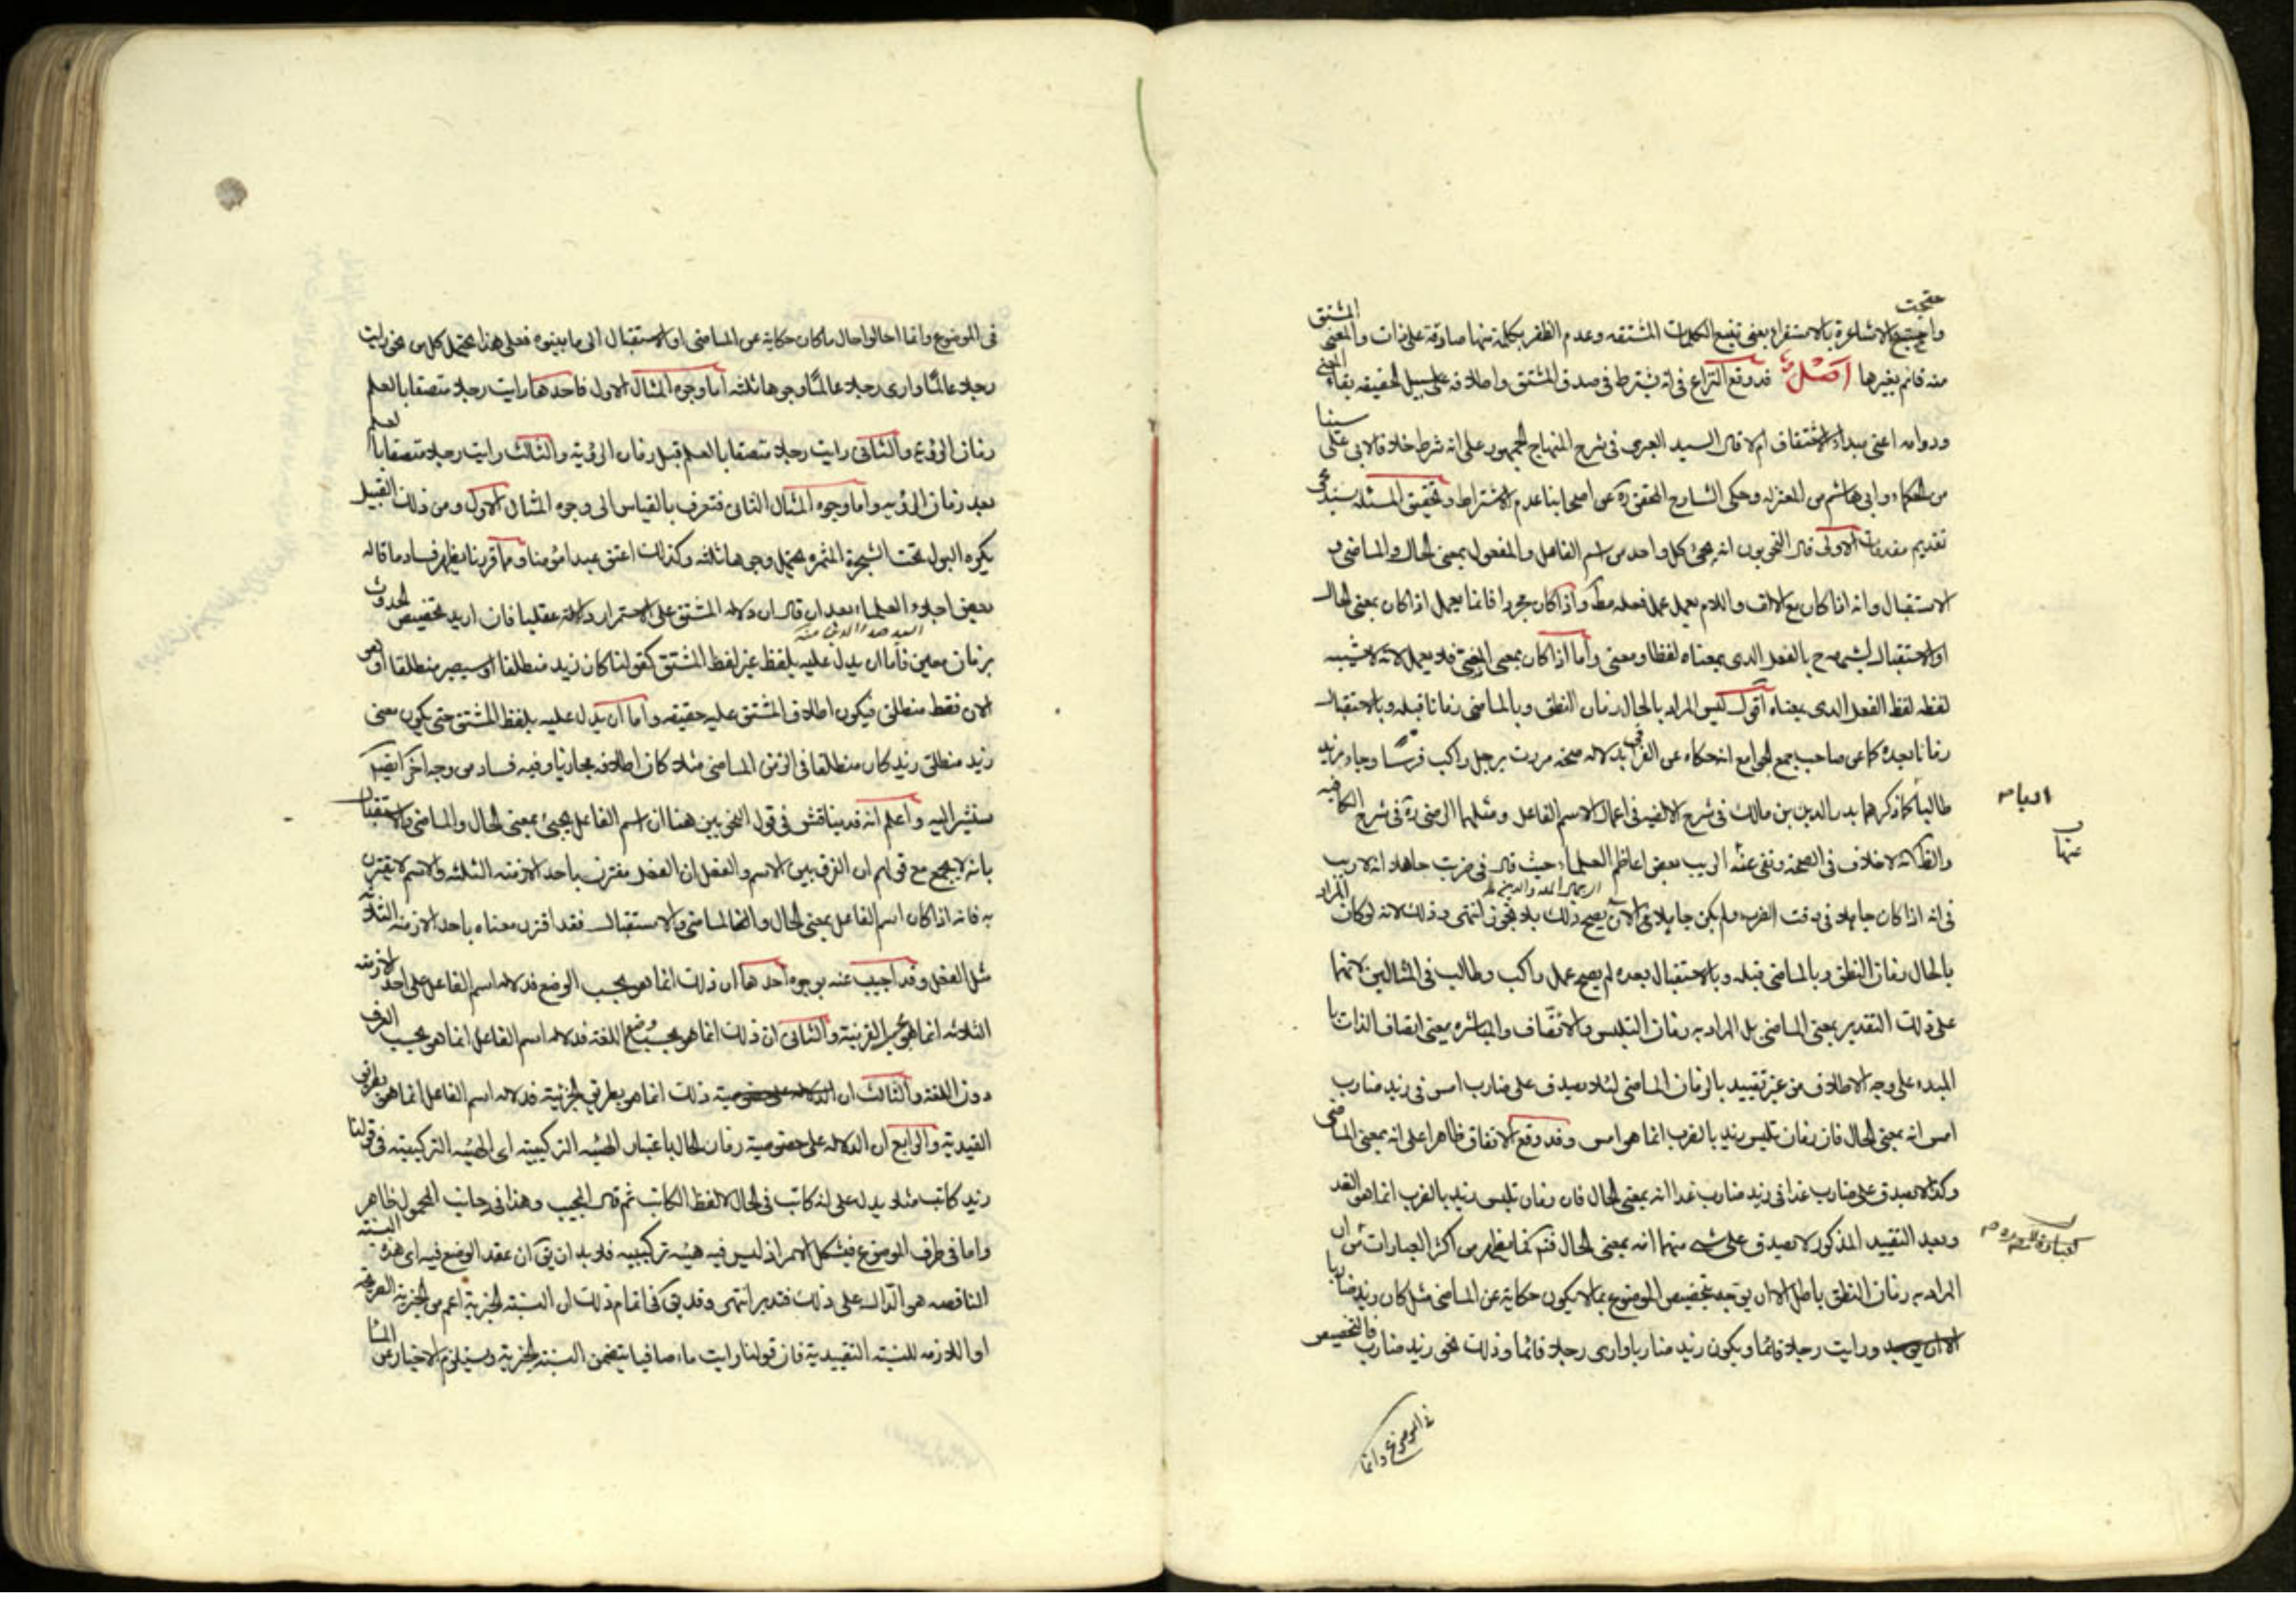 واحتجت الاشاعرة بالاستقراء يعنى تتبع الكلمات المشتقه وعدم الظفر بكلمة منها صادقة على ذات والمعنى المشتق
منه قائم بغيرها اصل قد وقع النزاع فى انه يشترط فى صدق المشتق واطلاقه على سبيل الحقيقه بقاء المعنى
ودوامه اعنى مبداء الاشتقاق ام لا قال السيد العبرى فى شرح المنهاج الجمهور على انه شرط خلافا لابى على سينا
من الحكماء وابى هاشم من المعتزله وحكى الشارح المحقق ره عن اصحابنا عدم الاشتراط وتحقيق المسئله يستدعى
تقديم مقدمات الاولى قال النحويون انه يجئ كل واحد من اسم الفاعل والمفعول بمعنى الحال والماضى و
الاستقبال وانه اذا كان مع الالف واللام يعمل عمل فعله مط واذا كان مجردا فانما يعمل اذا كان بمعنى الحال
او الاستقبال لشبهه ح بالفعل الذى بمعناه لفظا ومعنى واما اذا كان بمعنى المضى فلا يعمل لانه لا يشبه
لفظه لفظ الفعل الذى بمعناه اقول ليس المراد بالحال زمان النطق وبالماضى زمانا قبله وبالاستقبال
زمانا بعده كما عن صاحب جمع الجوامع انه حكاه عن القرافى بدلاله صحة مررت برجل راكب فرسا وجاء زيد
طالبا كما ذكرهما بدر الدين بن مالك فى شرح الالفيه فى اعمال الاسم الفاعل ومثلهما الرضى ره فى شرح الكافيه
والظ انه لا خلاف فى الصحة ونفى عنه الريب بعض اعاظم العلماء حيث قال فى ضربت جاهلا انه لا ريب
فى انه اذا كان جاهلا فى وقت الضرب ولم يكن جاهلا فى الان يصح ذلك بلا تجوز انتهى وذلك لانه لو كان المراد
بالحال زمان النطق وبالماضى قبله وبالاستقبال بعده لم يصح عمل راكب وطالب فى المثالين لانهما
على ذلك التقدير بمعنى الماضى بل المراد به زمان التلبس والاتصاف والمباشره يعنى اتصاف الذات با
المبدء على وجه الاطلاق من غير تقييد بالزمان الماضى لئلا يصدق على ضارب امس فى زيد ضارب
امس انه بمعنى الحال فان زمان تلبس زيد بالضرب انما هو امس وقد وقع الاتفاق ظاهرا على انه بمعنى الماضى
وكذا لا يصدق على ضارب غدا فى زيد ضارب غدا انه بمعنى الحال فان زمان تلبس زيد بالضرب انما هو الغد
وبعد التقييد المذكور لا يصدق على شئ منهما انه بمعنى الحال فتم كما يظهر من اكثر العبارات من ان
المراد به زمان النطق باطل الا ان يوجه بتخصيص الموضوع بما لا يكون حكاية عن الماضى مثل كان زيد ضاربا
ورايت رجلا قائما ويكون زيد ضاربا وارى رجلا قائما وذلك نحو زيد ضارب فالتخصيص
فى الموضوع وانما
فى الموضوع وانما احالوا حال ما كان حكاية عن الماضى او الاستقبال الى ما بينوه فعلى هذا يحتمل كل من نحو رايت
رجلا عالما وارى رجلا عالما وجوها ثلثه اما وجوه المثال الاول فاحدها رايت رجلا متصفا بالعلم
زمان الرؤية والثانى رايت رجلا متصفا بالعلم قبل زمان الرؤية والثالث رايت رجلا متصفا بالعلم
بعد زمان الرؤيه واما وجوه المثال الثانى فتعرف بالقياس الى وجوه المثال الاول ومن ذلك القبيل
يكره البول تحت الشجرة المثمره يحتمل وجوها ثلثه وكذلك اعتق عبدا مؤمنا ومما قررنا يظهر فساد ما قاله
بعض اجلاء العلماء بعد ان قال ان دلاله المشتق على الاستمرار دلالة عقليا فان اريد تخصيص الحدوث
بزمان معين فاما ان يدل عليه بلفظ غير لفظ المشتق كقولنا كان زيد منطلقا او سيصير منطلقا او هو
الان فقط منطلق فيكون اطلاق المشتق عليه حقيقه واما ان يدل عليه بلفظ المشتق حتى يكون معنى
زيد منطلق زيد كان منطلقا فى الزمن الماضى مثلا كان اطلاقه مجازيا وفيه فساد من وجه اخر ايضا
سنشير اليه واعلم انه قد يناقش فى قول النحويين هنا ان اسم الفاعل يجيئ بمعنى الحال والماضى والاستقبال
بانه لا يجمع مع قولهم ان الفرق بين الاسم والفعل ان الفعل مقترن باحد الازمنه الثلثه والاسم لا يقترن
به فانه اذا كان اسم الفاعل بمعنى الحال والماضى والاستقبال فقد اقترن معناه باحد الازمنه الثلاثه
مثل الفعل وقد اجيب عنه بوجوه احدها ان ذلك انما هو بحسب الوضع فدلاله اسم الفاعل على احد الازمنه
الثلاثه انما هو بحسب القرينة والثانى ان ذلك انما هو بحسب وضع اللغة فدلاله اسم الفاعل انما هو بحسب العرف
دون اللغة والثالث ان ذلك انما هو بطريق الجزئية فدلاله اسم الفاعل انما هو بطريق
القيديه والرابع ان الدلاله على خصوصية زمان الحال باعتبار الهيئه التركيبيه اى الهيئه التركيبيه فى قولنا
زيد كاتب مثلا يدل على انه كاتب فى الحال لا لفظ الكاتب ثم قال المجيب وهذا فى جانب المحمول ظاهر
واما فى طرف الموضوع فيشكل الامر اذ ليس فيه هيئه تركيبيه فلا بد ان يق ان عقد الوضع فيه اى هذه النسبة
الناقصه هو الدال على ذلك فتدبر انتهى وقد يق فى اتمام ذلك ان النسبة الخبرية اعم من الخبريه الصريحه
او اللازمه للنسبه التقييدية فان قولنا رايت ماء صافيا يتضمن النسبة الخبرية ويستلزم الاخبار عن